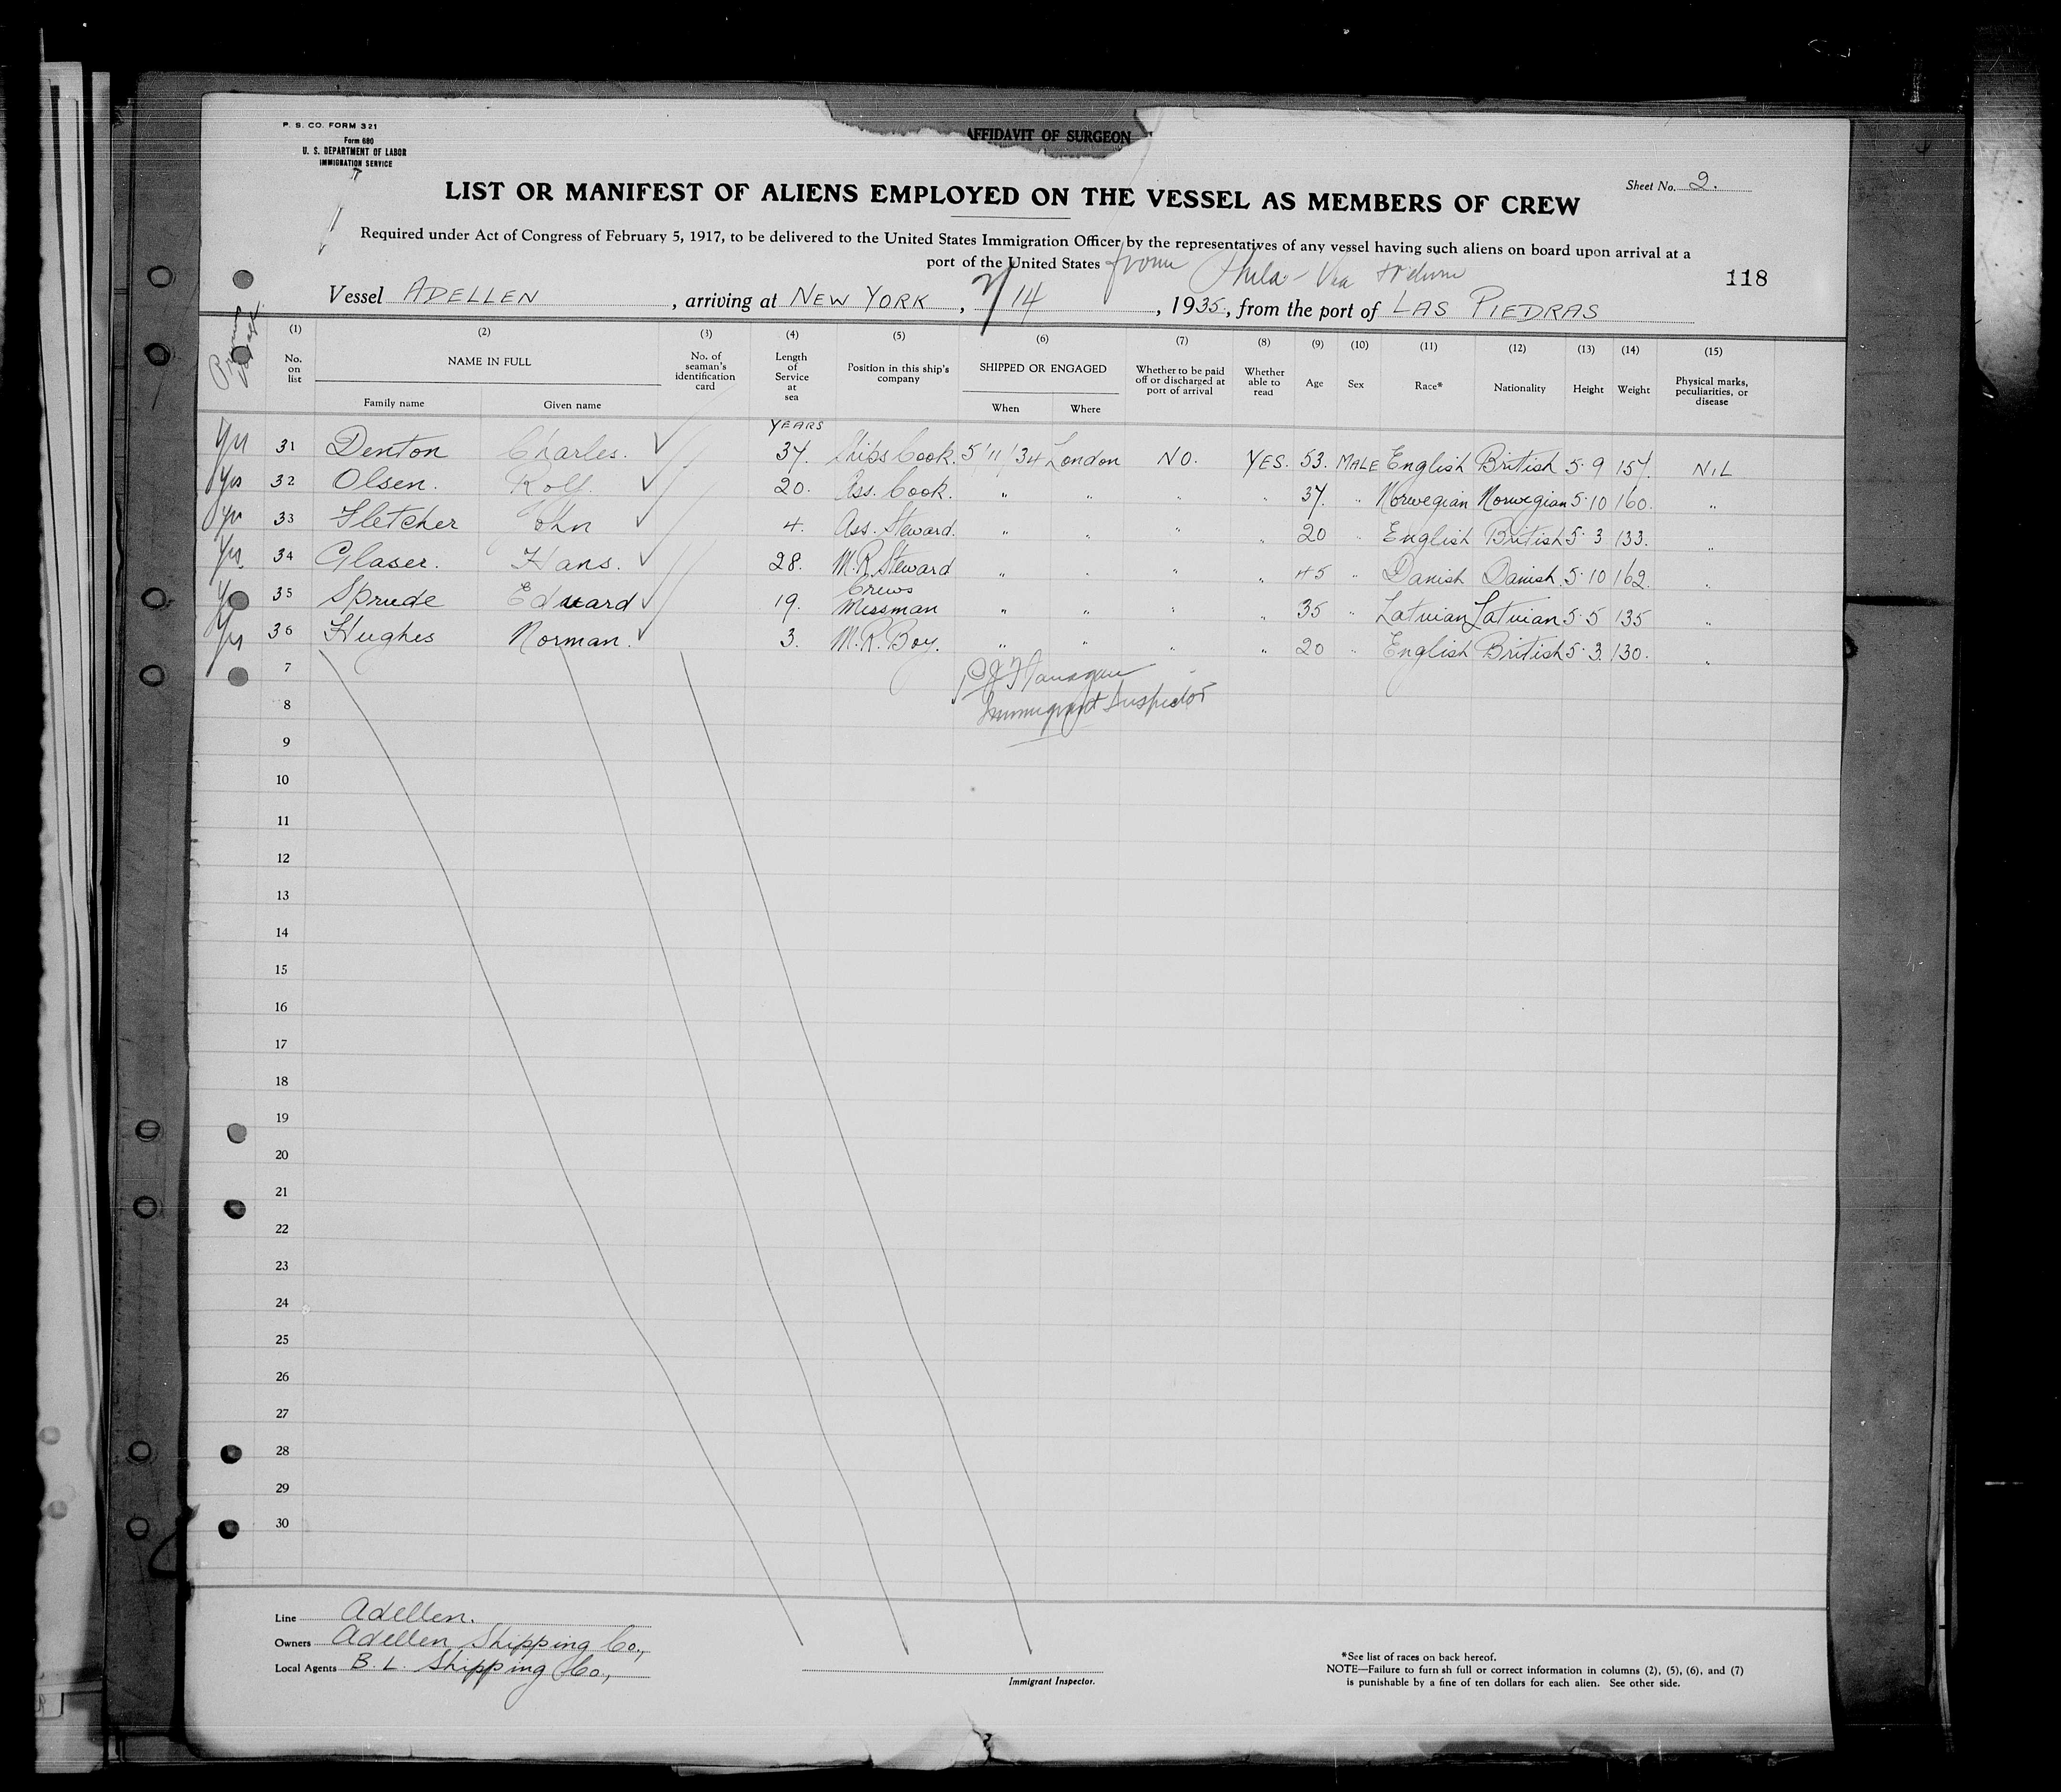 AFFIDAVIT OF SURGEON
P. S. CO. FORM 321
Form 680
U. S. DEPARTMENT OF LABOR
IMMIGRATION SERVICE
Sheet No. 2.
LIST OR MANIFEST OF ALIENS EMPLOYED ON THE VESSEL AS MEMBERS OF CREW
Required under Act of Congress of February 5, 1917, to be delivered to the United States Immigration Officer by the representatives of any vessel having such aliens on board upon arrival at a
port of the United States from Phila - Via
118
Vessel ADELLEN, arriving at NEW YORK, 2/14, 1935, from the port of LAS PIEDRAS
(1) (2) (3) (4) (5) (6) (7) (8) (9) (10) (11) (12) (13) (14) (15)
No. on list NAME IN FULL No. of seaman's identification card Length of Service at sea Position in this ship's company SHIPPED OR ENGAGED Whether to be paid off or discharged at port of arrival Whether able to read Age Sex Race* Nationality Height Weight Physical marks, peculiarities, or disease
Family name Given name When Where
YEARS
Yes 31 Denton Charles. ✓ 37. Ships Cook. 5/11/34 London NO. YES. 53. MALE English British 5·9 157. NIL
Yes 32 Olsen. Rolf. ✓ 20. Ass. Cook. " " " " 37. " Norwegian Norwegian 5·10 160. "
Yes 33 Fletcher John ✓ 4. Ass. Steward. " " " " 20 " English British 5·3 133. "
Yes 34 Glaser. Hans. ✓ 28. M.R. Steward " " " " 45 " Danish Danish. 5·10 162. "
Yes 35 Sprude Eduard ✓ 19. Crews Messman " " " " 35 " Latvian Latvian 5·5 135 "
Yes 36 Hughes Norman. ✓ 3. M.R. Boy. " " " " 20 " English British 5·3. 130. "
7 PJ Flanagan
8 Immigrant Inspector
9
10
11
12
13
14
15
16
17
18
19
20
21
22
23
24
25
26
27
28
29
30
Line Adellen.
Owners Adellen Shipping Co.,
Local Agents B. L. Shipping Co.,
Immigrant Inspector.
*See list of races on back hereof.
NOTE—Failure to furn sh full or correct information in columns (2), (5), (6), and (7)
is punishable by a fine of ten dollars for each alien. See other side.